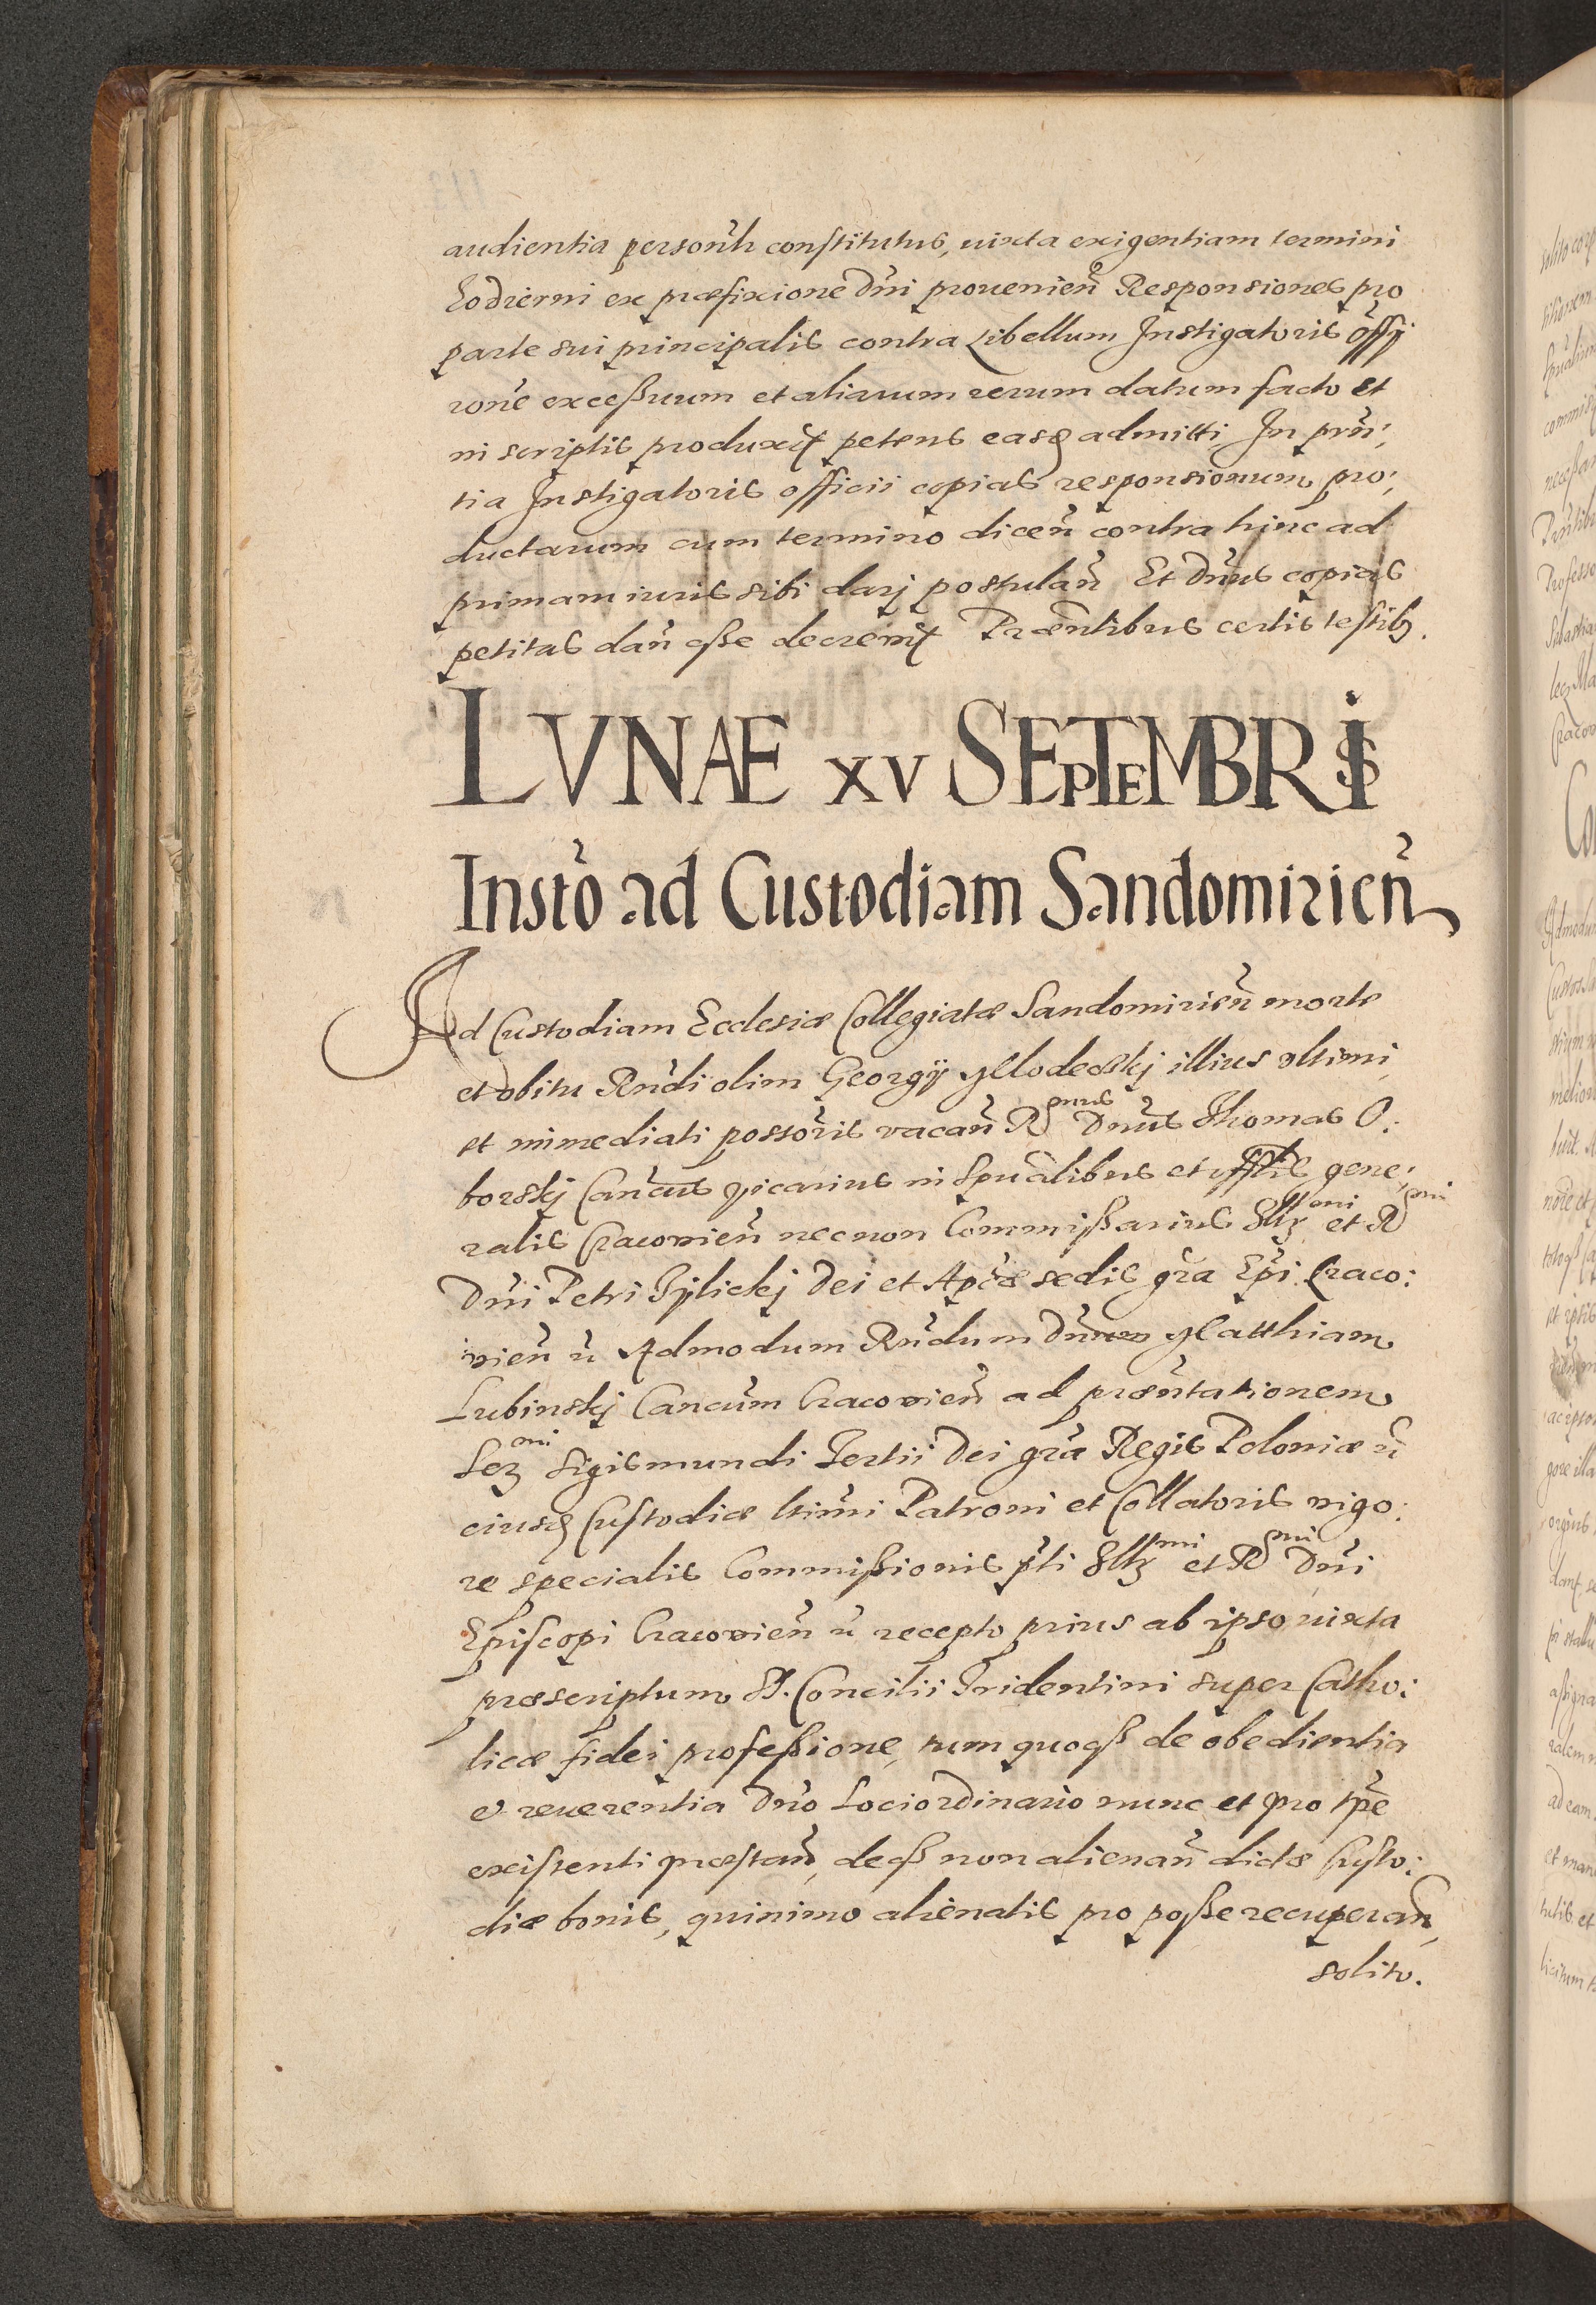 audientia person̄lr constitutus, iuxta exigentiam termini
hodierni ex præfixione Dn̄i prouenien̄ Responsiones pro
parte sui principalis contra Libellum Instigatoris off̄ij
rōne excessuum et aliarum rerum datum facto et
in scriptis produxit petens easq admitti In prn̄:
tia Instigatoris officii copias responsionum pro:
ductarum cum termino dicen̄ contra hinc ad
primam iuris sibi darj postulan̄ Et Dn̄us copias
petitas dan̄ esse decreuit Præn̄tibus certis testibꝫ.
LVNÆ XV SEPTEMBRIS
Instō ad Custodiam Sandomirien̄
Ad Custodiam Ecclesiæ Collegiatæ Sandomirien̄ morte
et obitu Rn̄di olim Georgij Mlodeckj illius vltimi
et immediati possōris vacan̄ R͠mus Dn̄us Thomas O:
borskj Can̄cus vicarius in Spūalibus et offl̄is gene:
ralis Cracovien̄ necnon Commissarius Illꝫmi et R͠mi
Dn̄i Petri Tylickj Dei et Ap̄cæ sedis gr̄a Ep̄i Craco:
vien̄ ēt Admodum Rn̄dum Dn̄um Matthiam
Lubinskj Cancūm Cracovien̄ ad præn̄tationem
Seꝫmi Sigismundi Tertii Dei gr̄a Regis Poloniæ ēt
eiusq Custodiæ ltimī Patroni et Collatoris vigo:
re specialis Commissionis p̄ti Illꝫmi et R͠mi Dn̄i
Episcopi Cracovien̄ ēt recepto prius ab ipso iuxta
præscriptum S. Concilii Tridentini super Catho:
licæ fidei professione, tum quoqß de obedientia
et reuerentia Dn̄o Lociordinario nunc et pro tp̄e
existenti præstan̄, deqß non alienan̄ dictæ Custo:
diæ bonis, quinimo alienatis pro posse recuperan̄,
solito.